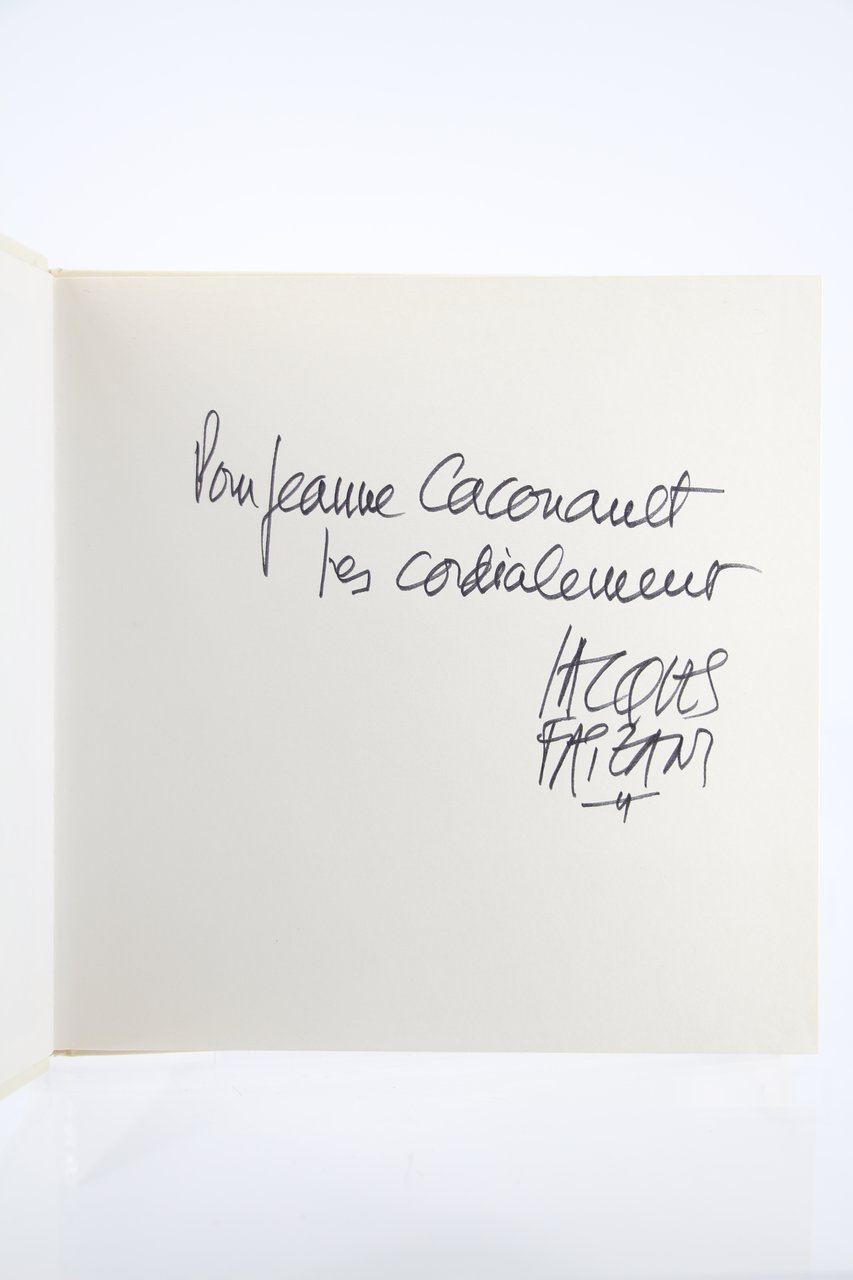 Pour Jeanne Cacouault
très cordialement
JACQUES
FAIZANT